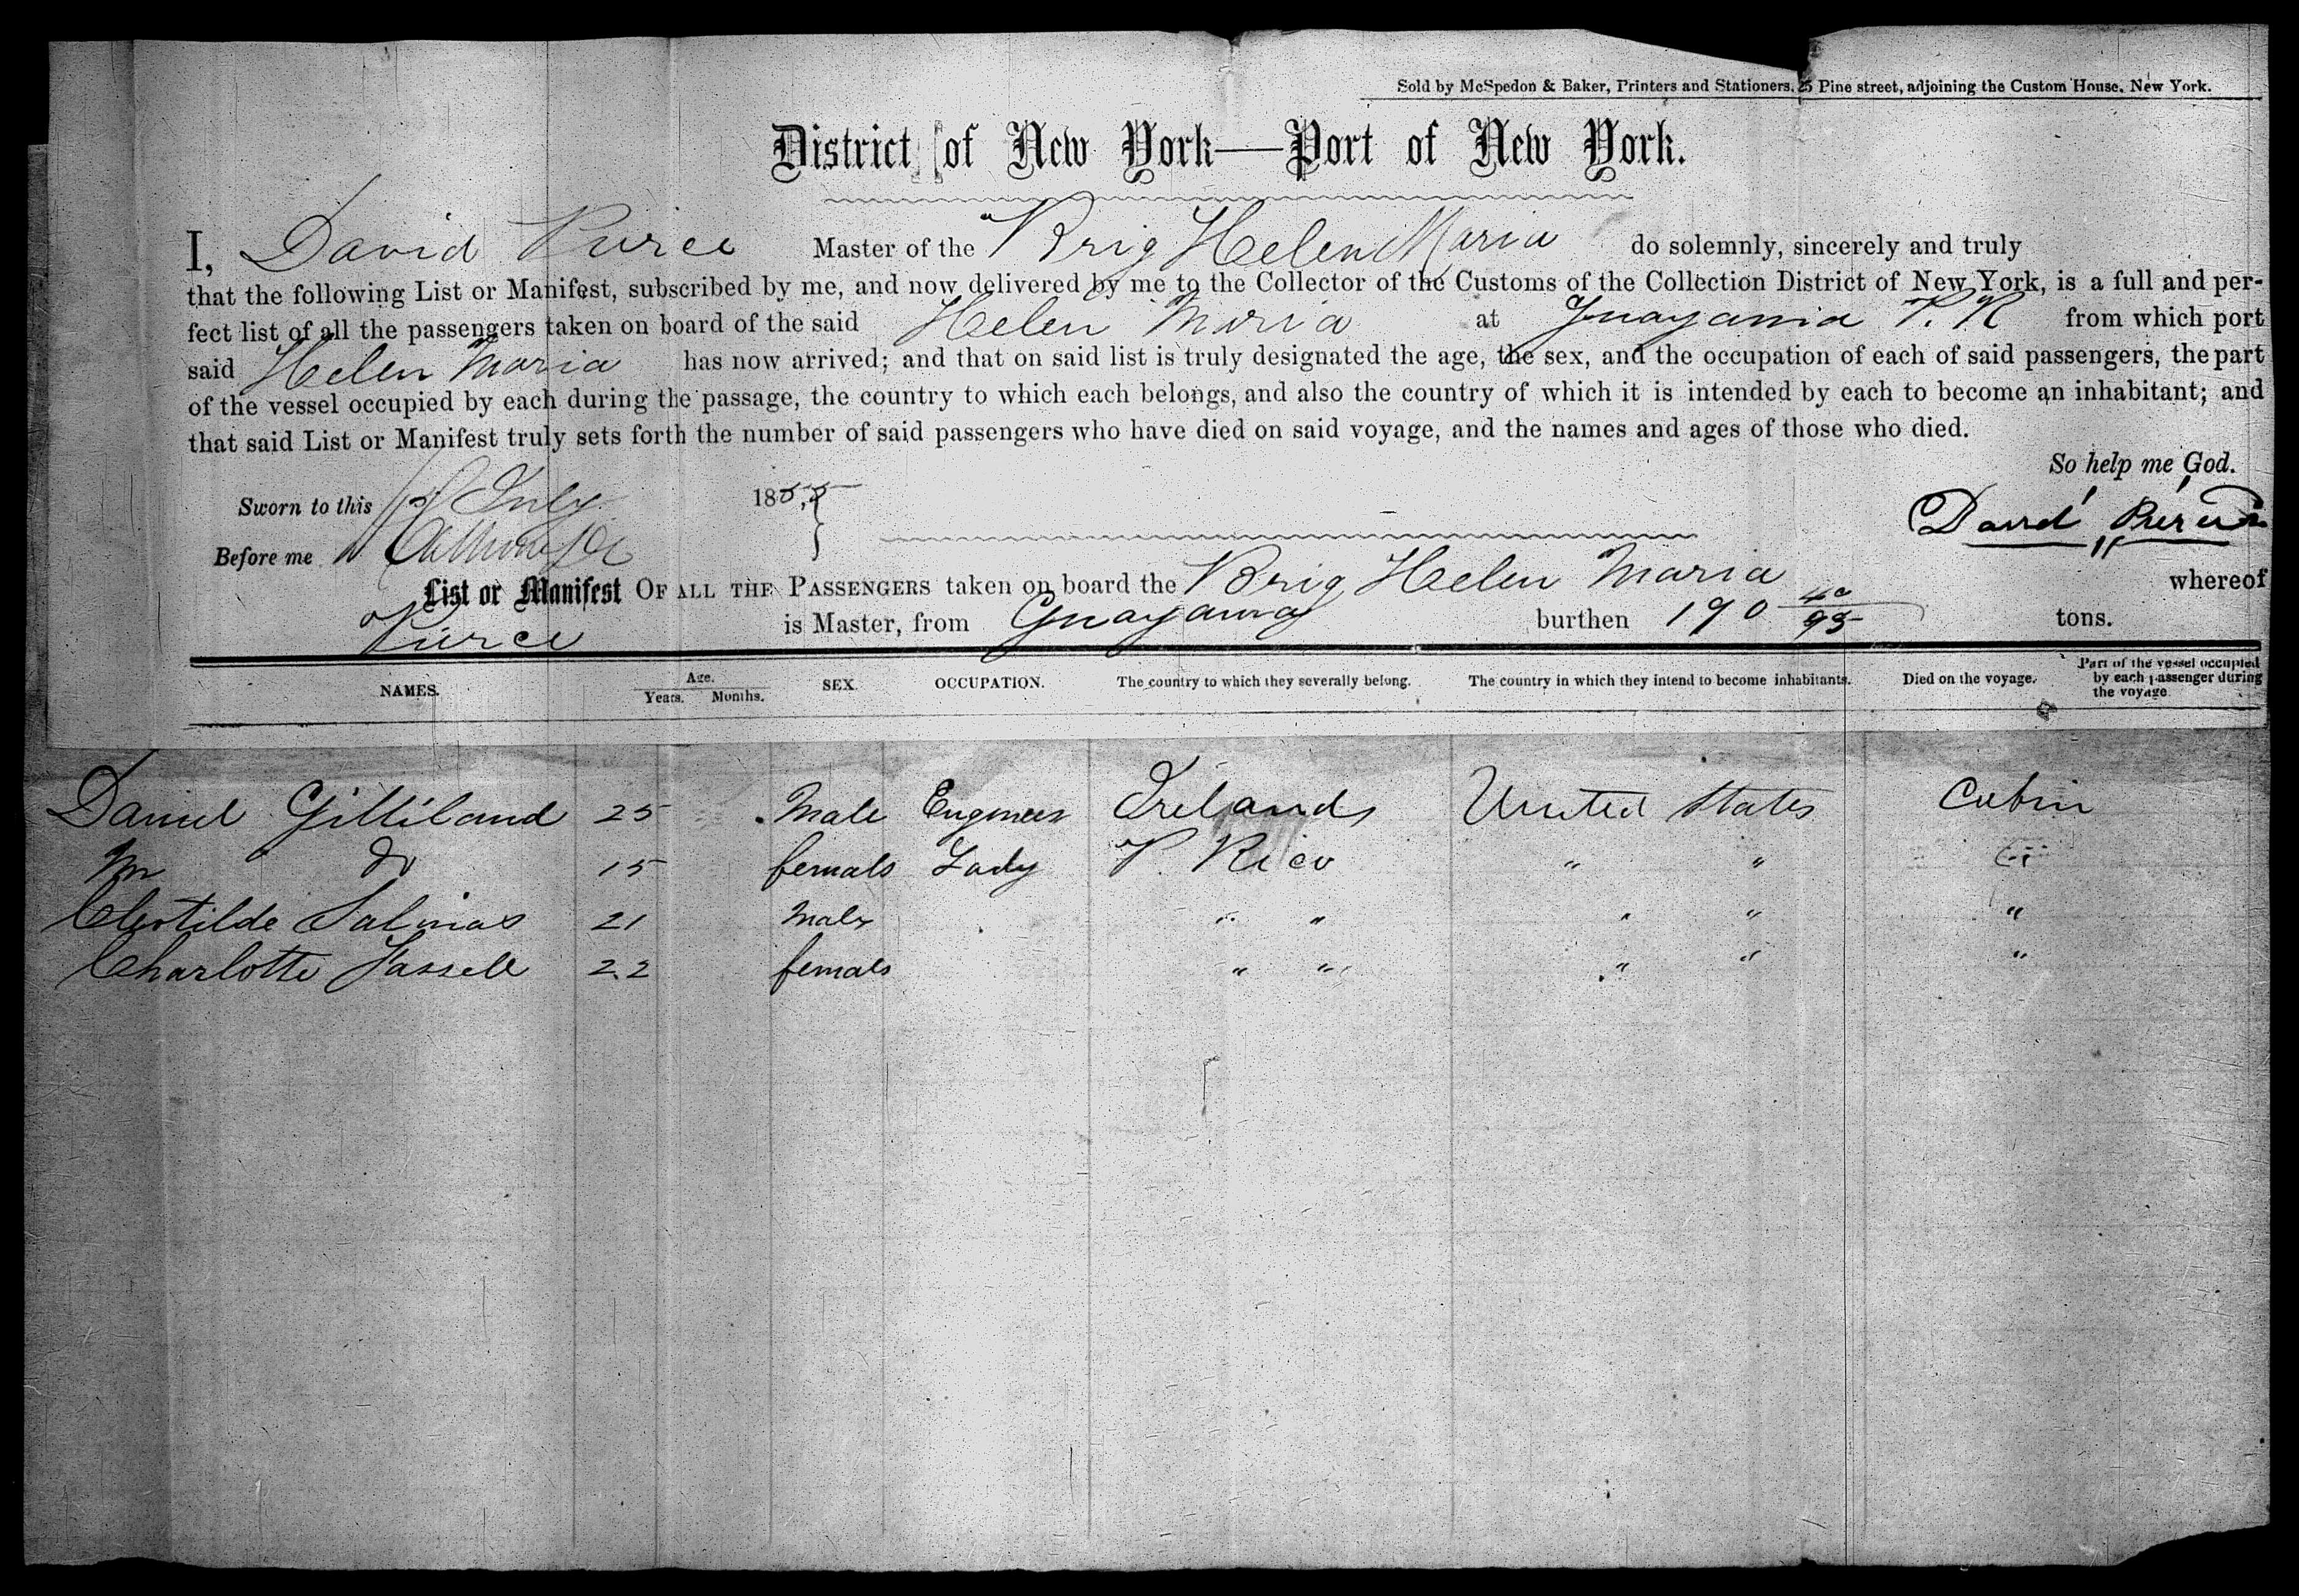 Sold by McSpedon & Baker, Printers and Stationers, 25 Pine street, adjoining the Custom House, New York.
District of New York—Port of New York.
I, David Pierce Master of the Brig Helen Maria do solemnly, sincerely and truly
that the following List or Manifest, subscribed by me, and now delivered by me to the Collector of the Customs of the Collection District of New York, is a full and per-
fect list of all the passengers taken on board of the said Helen Maria at Guayama P. R from which port
said Helen Maria has now arrived; and that on said list is truly designated the age, the sex, and the occupation of each of said passengers, the part
of the vessel occupied by each during the passage, the country to which each belongs, and also the country of which it is intended by each to become an inhabitant; and
that said List or Manifest truly sets forth the number of said passengers who have died on said voyage, and the names and ages of those who died.
So help me God.
Sworn to this July 1855
David Pierce
Before me
List or Manifest OF ALL THE PASSENGERS taken on board the Brig Helen Maria whereof
Pierce is Master, from Guayama burthen 190 40/95 tons.
NAMES. Age. Years. Months. SEX. OCCUPATION. The country to which they severally belong. The country in which they intend to become inhabitants. Died on the voyage. Part of the vessel occupied by each passenger during the voyage
Daniel Gilliland 25 Male Engineer Ireland United States Cabin
M do 15 female Lady P. Rico " " "
Clotilde Salinas 21 Male " " " " "
Charlotte 22 female " " " " "